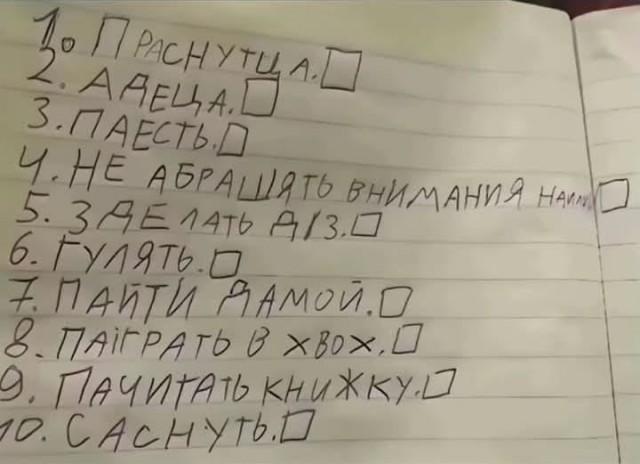 1. ПРАСНУТЦА.
2. АДЕЦА.
3. ПАЕСТЬ.
4. НЕ АБРАЩЯТЬ ВНИМАНИЯ
5. ЗДЕЛАТЬ Д/З.
6. ГУЛЯТЬ.
7. ПАЙТИ ДАМОЙ.
8. ПАІГРАТЬ В ХВОХ.
9. ПАЧИТАТЬ КНИЖКУ.
10. САСНУТЬ.